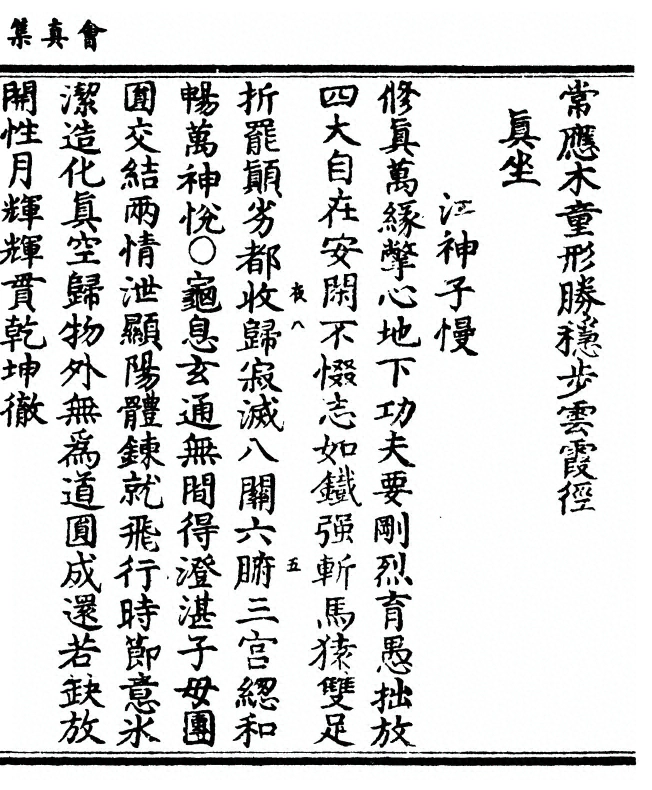 會真集
常應木童形勝穩步雲霞徑
真坐
江神子慢
修真萬緣擎心地下功夫要剛烈育愚拙放
四大自在安閑不惙志如鐵强斬馬猿雙足
折罷顛劣都收歸寂滅八關六腑三宮總和
夜八
五
暢萬神悅○龜息玄通無間得澄湛子母團
圓交結兩情泄顯陽體鍊就飛行時節意氷
潔造化真空歸物外無為道圓成還若缺放
開性月輝輝貫乾坤徹